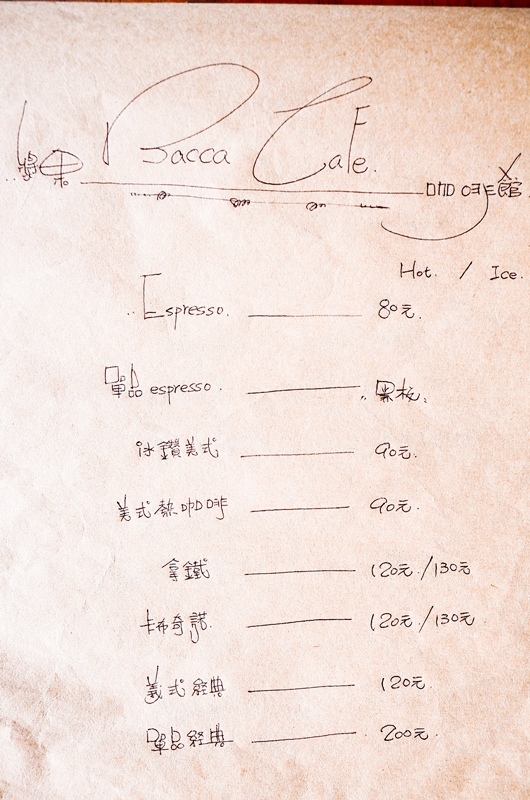 漿果 Bacca CaFe. 咖啡館
Hot. / Ice.
Espresso. 80元.
單品 espresso. 黑板.
冰鑽美式 90元.
美式熱咖啡 90元.
拿鐵 120元/130元
卡布奇諾. 120元/130元
義式經典 120元.
單品經典 200元.